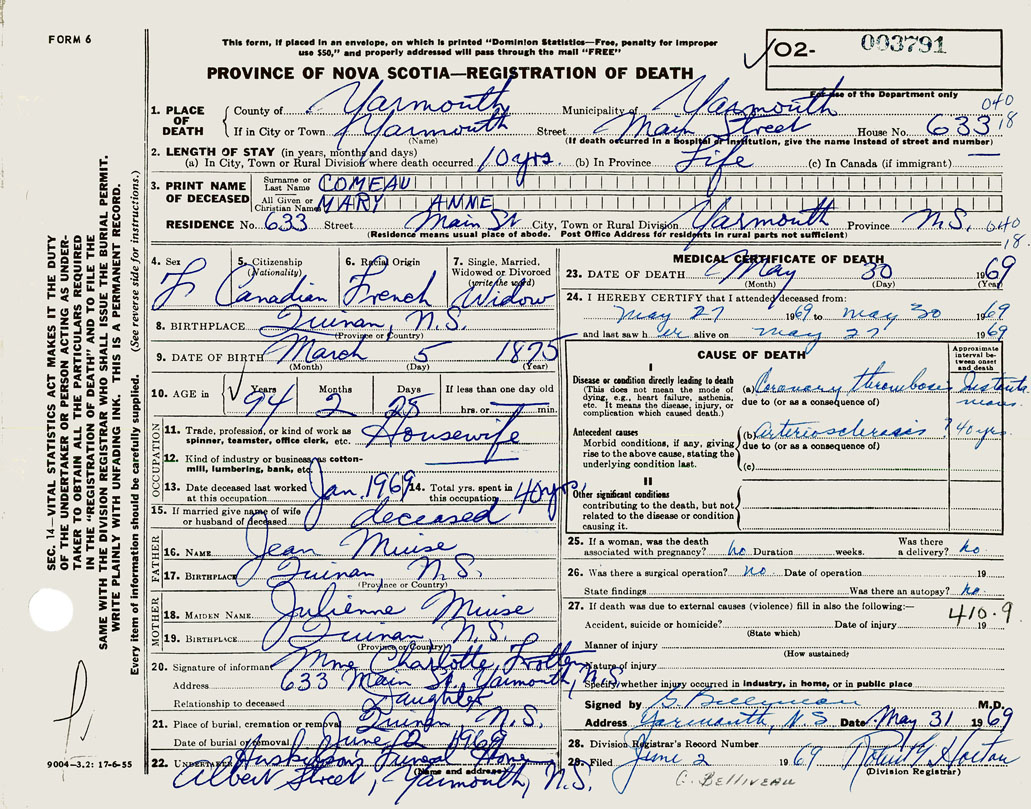 FORM 6
This form, if placed in an envelope, on which is printed "Dominion Statistics—Free, penalty for improper
use $50," and properly addressed will pass through the mail "FREE"
O2- 003791
For use of the Department only
PROVINCE OF NOVA SCOTIA—REGISTRATION OF DEATH
1. PLACE OF DEATH County of Yarmouth Municipality of Yarmouth 040
If in City or Town Yarmouth Street Main Street House No. 633 18
(Name) (If death occurred in a hospital or institution, give the name instead of street and number)
2. LENGTH OF STAY (in years, months and days)
(a) In City, Town or Rural Division where death occurred 10 yrs. (b) In Province Life (c) In Canada (if immigrant) —
3. PRINT NAME OF DECEASED Surname or Last Name COMEAU
All Given or Christian Names MARY ANNE
RESIDENCE No. 633 Street Main St City, Town or Rural Division Yarmouth Province N.S. 040
(Residence means usual place of abode. Post Office Address for residents in rural parts not sufficient) 18.
4. Sex 5. Citizenship (Nationality) 6. Racial Origin 7. Single, Married, Widowed or Divorced (write the word)
F Canadian French Widow
8. BIRTHPLACE Quinan, N.S.
(Province or Country)
9. DATE OF BIRTH March 5 1875
(Month) (Day) (Year)
10. AGE in Years Months Days If less than one day old
94 2 25 hrs. or min.
OCCUPATION
11. Trade, profession, or kind of work as
spinner, teamster, office clerk, etc. Housewife
12. Kind of industry or business as cotton-
mill, lumbering, bank, etc.
13. Date deceased last worked at this occupation Jan. 1969 14. Total yrs. spent in this occupation 40 yrs.
15. If married give name of wife
or husband of deceased deceased
FATHER
16. NAME Jean Muise
17. BIRTHPLACE Quinan, N.S.
(Province or Country)
MOTHER
18. MAIDEN NAME Julienne Muise
19. BIRTHPLACE Quinan, N.S.
(Province or Country)
20. Signature of informant Mme Charlotte
Address 633 Main St., Yarmouth, N.S.
Relationship to deceased Daughter
21. Place of burial, cremation or removal Quinan, N.S.
Date of burial or removal June 2 1969
22. UNDERTAKER Huskilson's Funeral Home
(Name and address)
Albert Street, Yarmouth, N.S.
MEDICAL CERTIFICATE OF DEATH
23. DATE OF DEATH May 30 1969
(Month) (Day) (Year)
24. I HEREBY CERTIFY that I attended deceased from:
May 27 1969 to May 30 1969
and last saw her alive on May 27 1969
CAUSE OF DEATH
Approximate interval between onset and death
I
Disease or condition directly leading to death
(This does not mean the mode of
dying, e.g., heart failure, asthenia,
etc. It means the disease, injury, or
complication which caused death.)
(a) Coronary thrombosis Instantaneous
due to (or as a consequence of)
Antecedent causes
Morbid conditions, if any, giving
rise to the above cause, stating the
underlying condition last.
(b) Arteriosclerosis ? 40 yrs
due to (or as a consequence of)
(c)
II
Other significant conditions
contributing to the death, but not
related to the disease or condition
causing it.
25. If a woman, was the death Was there
associated with pregnancy? no. Duration weeks. a delivery? no.
26. Was there a surgical operation? no. Date of operation 19
State findings Was there an autopsy? no.
27. If death was due to external causes (violence) fill in also the following:— 410.9
Accident, suicide or homicide? Date of injury 19
(State which)
Manner of injury
(How sustained)
Nature of injury
Specify whether injury occurred in industry, in home, or in public place
Signed by M.D.
Address Yarmouth, N.S. Date May 31 1969
28. Division Registrar's Record Number
29. Filed June 2 1969 Robert G Horton
(Division Registrar)
C. BELLIVEAU
SEC. 14—VITAL STATISTICS ACT MAKES IT THE DUTY
OF THE UNDERTAKER OR PERSON ACTING AS UNDER-
TAKER TO OBTAIN ALL THE PARTICULARS REQUIRED
IN THE "REGISTRATION OF DEATH" AND TO FILE THE
SAME WITH THE DIVISION REGISTRAR WHO SHALL ISSUE THE BURIAL PERMIT.
WRITE PLAINLY WITH UNFADING INK. THIS IS A PERMANENT RECORD.
Every item of information should be carefully supplied. (See reverse side for instructions.)
9004—3.2: 17-6-55